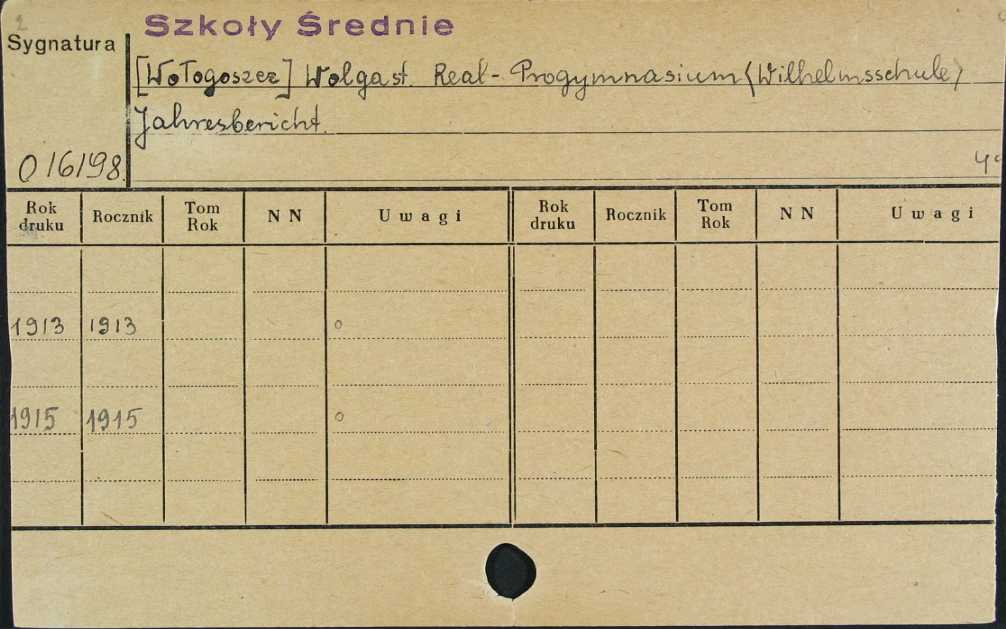 2
Szkoły Średnie
Sygnatura
[Wołogoszcz] Wolgast. Real-Progymnasium (Wilhelmsschule)
Jahresbericht.
O 16198.
4°
Rok druku Rocznik Tom Rok NN Uwagi Rok druku Rocznik Tom Rok NN Uwagi
1913 1913 o
1915 1915 o